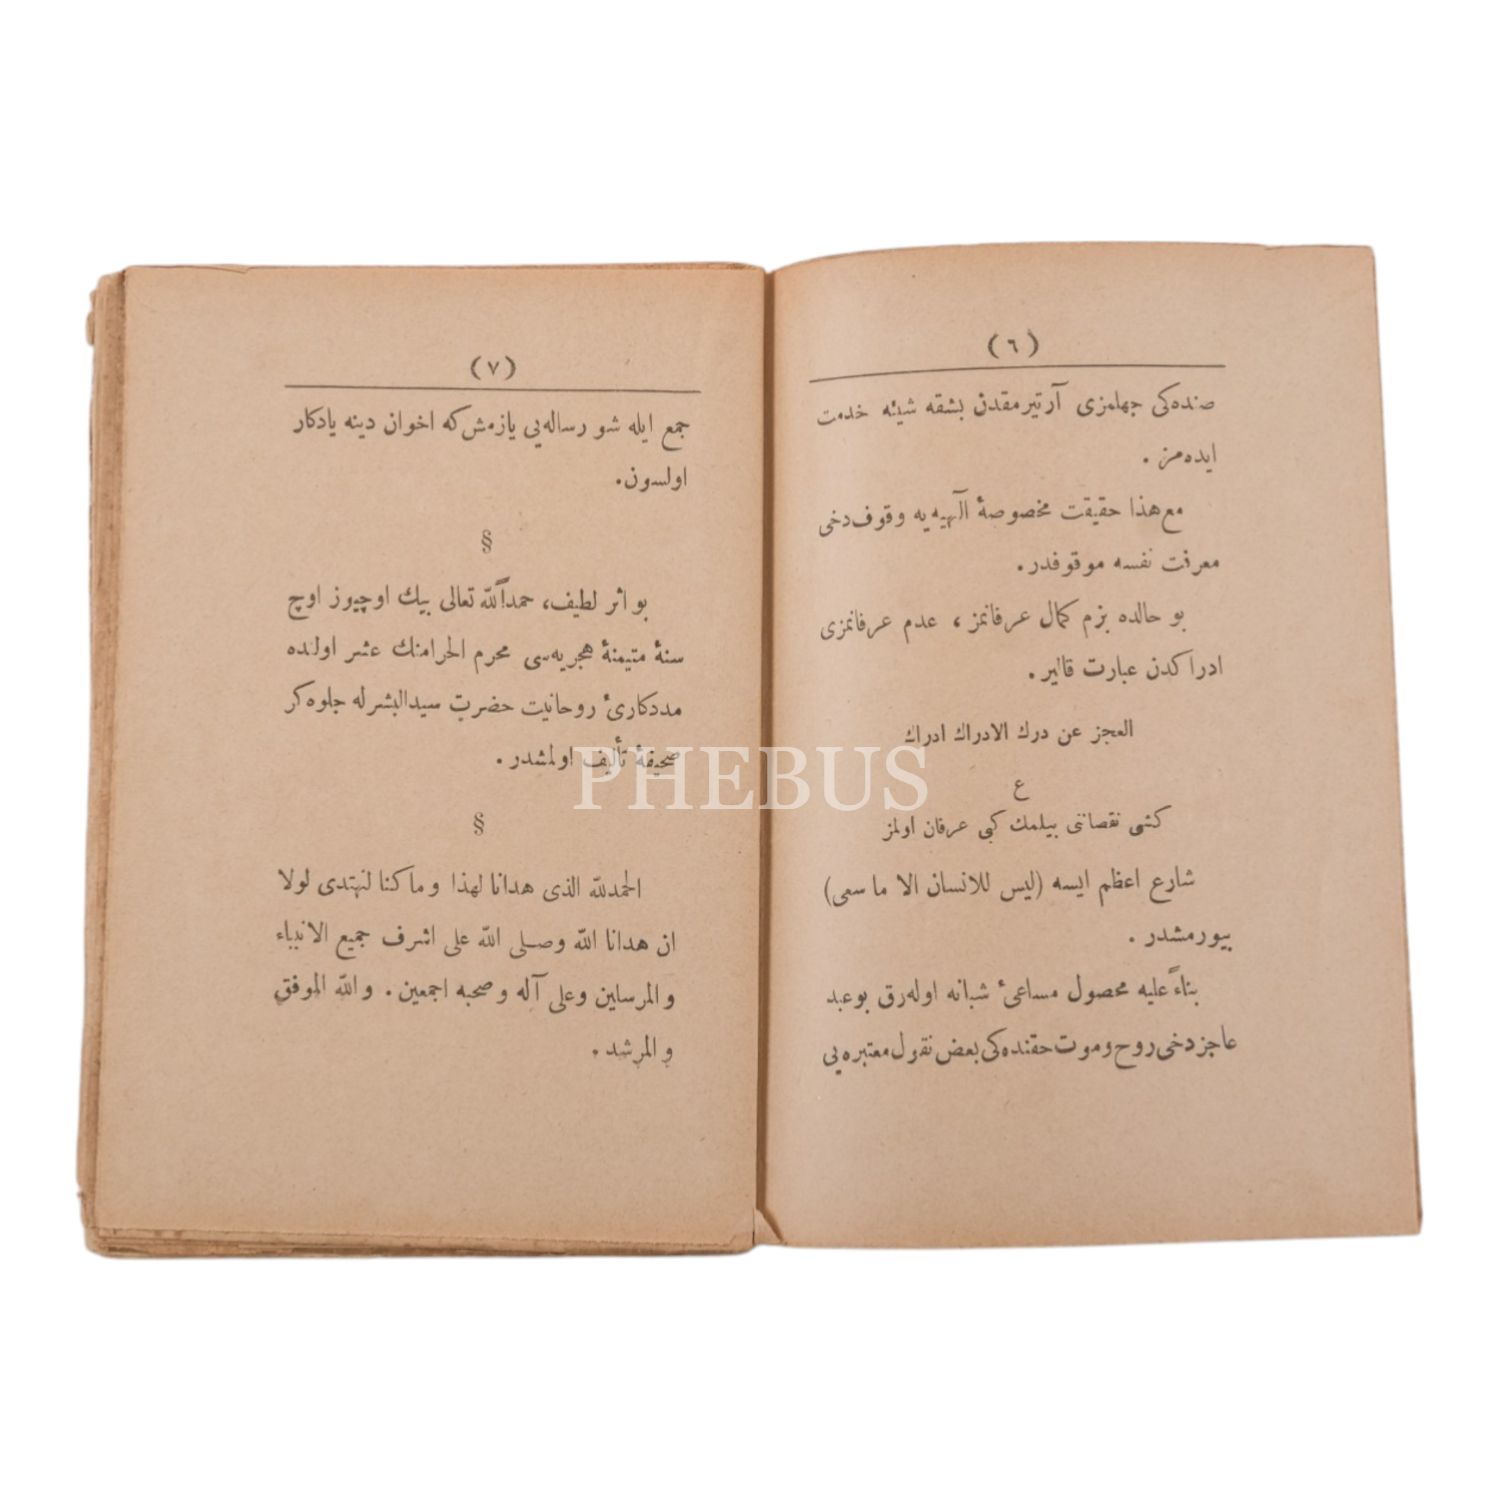 (٦)
صنده‌كی جهلمزی آرتیرمقدن بشقه شیئه خدمت
ایده‌مز .
مع‌هذا حقیقت مخصوصهٔ آلهیه‌یه وقوف‌دخی
معرفت نفسه موقوفدر .
بو حالده بزم كمال عرفانمز ، عدم عرفانمزی
ادراكدن عبارت قالیر .
العجز عن درك الادراك ادراك
ع
كشی نقصاننی بیلمك كبی عرفان اولمز
شارع اعظم ایسه (لیس للانسان الا ما سعی)
بیورمشدر .
بناءً علیه محصول مساعیٔ شبانه اوله‌رق بوعبد
عاجزدخی روح وموت حقنده‌كی بعض نقول معتبره‌یی
(٧)
جمع ایله شو رساله‌یی یازمش‌كه اخوان دینه یادكار
اولسون .
§
بو اثر لطیف، حمداً لله تعالی بیك اوچیوز اوچ
سنهٔ متیمنهٔ هجریه‌سی محرم الحرامنك عشر اولنده
مددكاریٔ روحانیت حضرت سیدالبشرله جلوه‌كر
صحیفهٔ تألیف اولمشدر .
§
الحمدلله الذی هدانا لهذا وماكنا لنهتدی لولا
ان هدانا الله وصلی الله علی اشرف جمیع الانبیاء
والمرسلین وعلی آله وصحبه اجمعین . والله الموفق
والمرشد .
PHEBUS